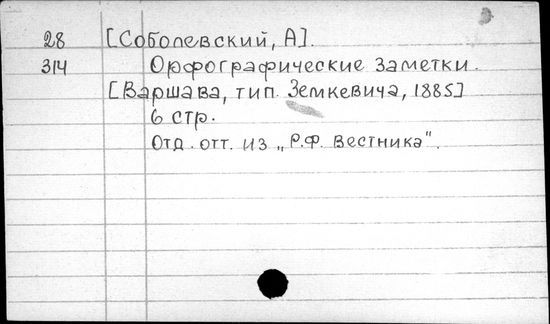 28 [Соболевский, А].
314 Орфографические заметки.
[Варшава, тип. Земкевича, 1885]
6 стр.
Отд. отт. из „Р.Ф. Вестника".